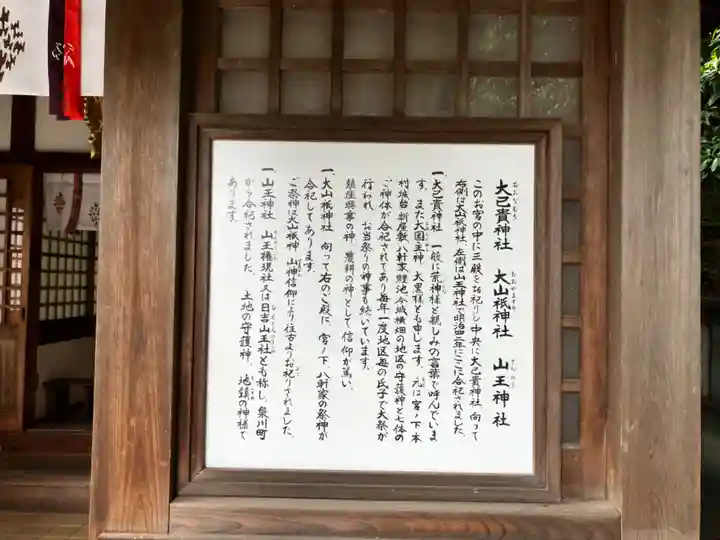 大己貴神社 大山祇神社 山王神社
このお宮の中に三殿をお祀りし中央に大己貴神社、向って
右側は大山祇神社、左側は山王神社で明治四二年にここに合祀されました。
一、大己貴神社 一般に荒神様と親しみの言葉で呼んでいま
す。また大国主神、大黒様とも申します。元は宮ノ下、本
村、城台、新屋敷、八軒家、鯉池、今城、横畑の地区の守護神と七体の
ご神体が合祀されてあり毎年一度地区毎の氏子で大祭が
行われ、お当祭りの神事も続いています。
鎮座興事の神、農耕の神として信仰が篤い。
一、大山祇神社 向って右のご殿に、宮ノ下、八軒家の祭神が
合祀してあります。
ご祭神は大山祇神、山神信仰により往古よりお祀りされました。
一、山王神社 山王権現社又は日吉山王社とも称し、泉川町
から合祀されました。 土地の守護神、地鎮の神様で
あります。